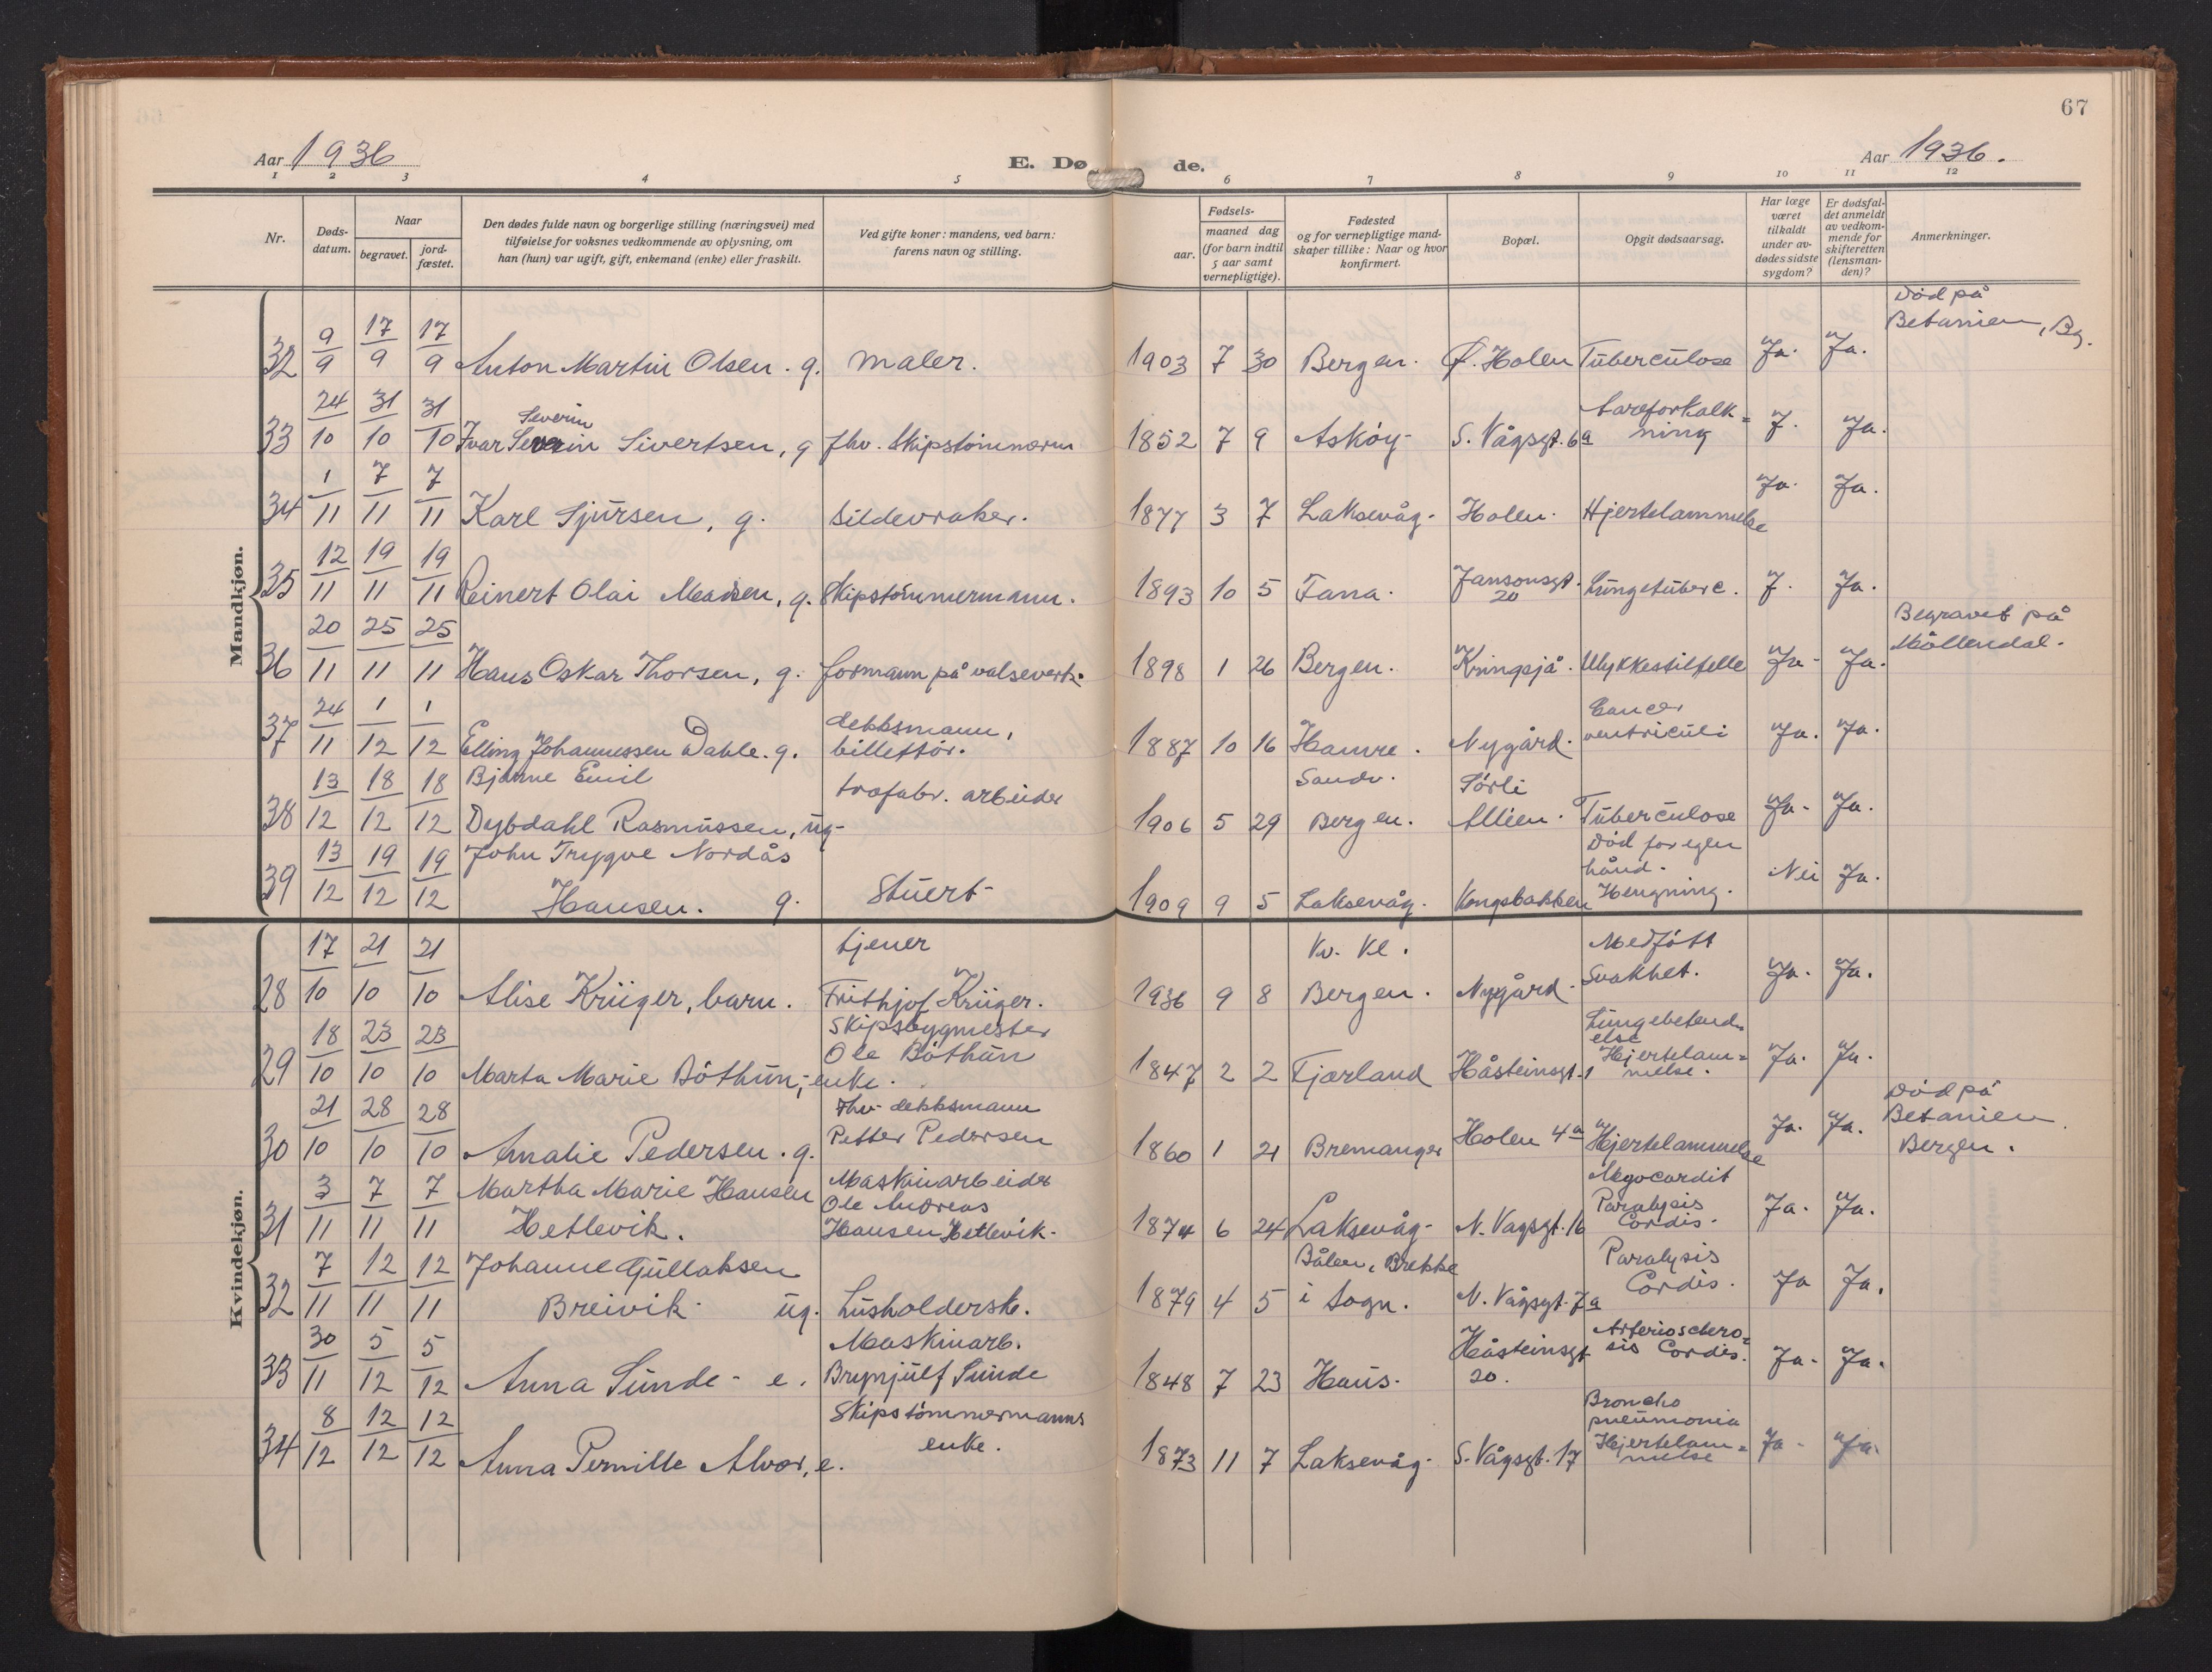 67
Aar 1936 E. Dø de. Aar 1936.
1 2 3 4 5 6 7 8 9 10 11 12
Nr.
Døds-
datum.
Naar
begravet.
jord-
fæstet.
Den dødes fulde navn og borgerlige stilling (næringsvei) med
tilføielse for voksnes vedkommende av oplysning, om
han (hun) var ugift, gift, enkemand (enke) eller fraskilt.
Ved gifte koner: mandens, ved barn:
farens navn og stilling.
Fødsels-
aar.
maaned dag
(for barn indtil
5 aar samt
vernepligtige).
Fødested
og for vernepligtige mand-
skaper tillike: Naar og hvor
konfirmert.
Bopæl.
Opgit dødsaarsag.
Har læge
været
tilkaldt
under av-
dødes sidste
sygdom?
Er dødsfal-
det anmeldt
av vedkom-
mende for
skifteretten
(lensman-
den)?
Anmerkninger.
Mandkjøn.
32 9/9 17/9 17/9 Anton Martin Olsen. g. maler. 1903 7 30 Bergen. Ø. Holen Tuberculose Ja. Ja.
Død på
Betanien, Bg.
33 24/10 31/10 31/10
Severin
Ivar Severin Sivertsen, g fhv. Skipstømmerm 1852 7 9 Askøy S. Vågsgt. 6a
Aareforkalk=
ning
J. Ja.
34 1/11 7/11 7/11 Karl Sjursen, g. sildevraker. 1877 3 7 Laksevåg. Holen. Hjertelammelse Ja. Ja.
35 12/11 19/11 19/11 Reinert Olai Madsen, g. Skipstømmermann. 1893 10 5 Fana.
Jansonsgt.
20
Lungetuberc. J. Ja.
36 20/11 25/11 25/11 Hans Oskar Thorsen, g. formann på valseverk. 1898 1 26 Bergen. Kringsjå. Ulykkestilfelle Ja. Ja.
Begravet på
Møllendal.
37 24/11 1/12 1/12 Elling Johannessen Dahle. g.
dekksmann,
billettør.
1887 10 16 Hamre. Nygård.
Cancer
ventriculi
Ja. Ja.
38 13/12 18/12 18/12
Bjarne Emil
Dybdahl Rasmussen, ug.
trafabr. arbeider
1906 5 29
Sandv.
Bergen.
Sørli
Alléen.
Tuberculose Ja. Ja.
39 13/12 19/12 19/12
John Trygve Nordås
Hansen. g.
Stuert 1909 9 5 Laksevåg. Kongsbakken
Død for egen
hånd.
Hengning.
Nei Ja.
Kvindekjøn.
28 17/10 21/10 21/10 Alise Krüger, barn.
tjener
Frithjof Krüger.
1936 9 8
Kv. Kl.
Bergen. Nygård.
Medfødt
Svakhet.
Ja. Ja.
29 18/10 23/10 23/10 Marta Marie Bøthun, enke.
Skipsbygmester
Ole Bøthun
1847 2 2 Fjærland Håsteinsgt. 1
Lungebetend=
else
Hjertelam=
melse.
Ja. Ja.
30 21/10 28/10 28/10 Amalie Pedersen. g.
Fhv. dekksmann
Petter Pedersen
1860 1 21 Bremanger Holen 4a Hjertelammelse Ja. Ja.
Død på
Betanien
Bergen.
31 3/11 7/11 7/11
Martha Marie Hansen
Hetlevik.
Maskinarbeider
Ole Andreas
Hansen Hetlevik.
1874 6 24 Laksevåg. N. Vagsgt. 16
Myocardit
Paralysis
Cordis.
Ja. Ja.
32 7/11 12/11 12/11
Johanne Gullaksen
Breivik. ug.
Husholdersk.
1879 4 5
Bålen, Brekke
i Sogn. N. Vågsgt. 7a
Paralysis
Cordis.
Ja Ja.
33 30/11 5/12 5/12 Anna Sunde. e.
Maskinarb.
Brynjulf Sunde
1848 7 23 Haus.
Håsteinsgt
20.
Arterioschero=
sis Cordis.
Ja. Ja.
34 8/12 12/12 12/12 Anna Pernille Alvær, e.
Skipstømmermanns
enke.
1873 11 7 Laksevåg. S. Vågsgt. 17
Broncho
pneumonia
Hjertelam=
melse
Ja. Ja.